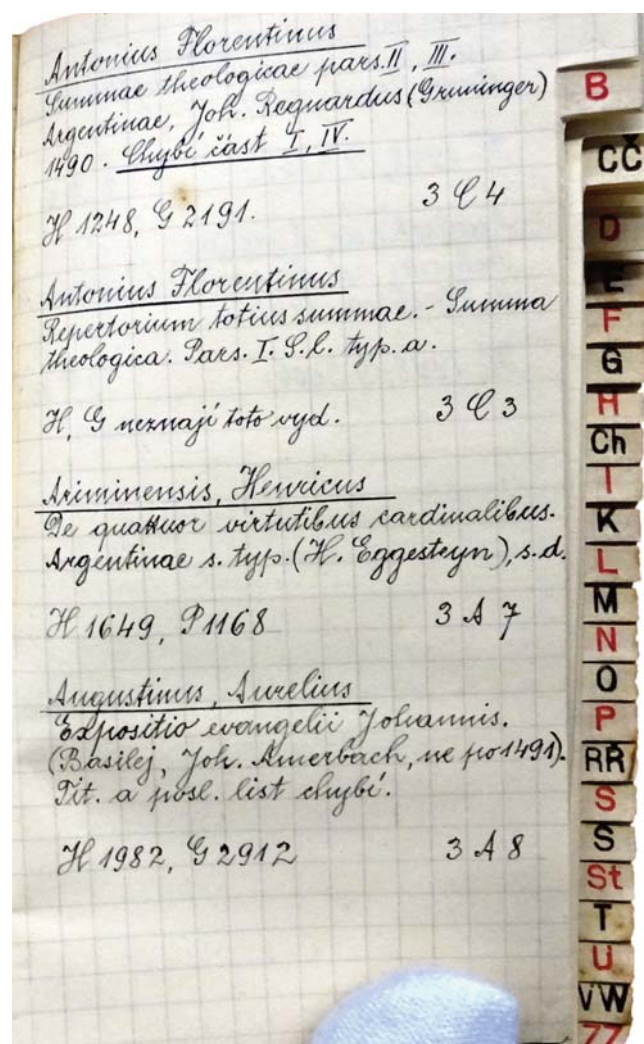 Antonius Florentinus
Summae theologicae pars. II, III.
Argentinae, Joh. Reguardus (Gruninger)
1490. Chybí část I, IV.
H 1248, G 2191.
3 C 4
Antonius Florentinus
Repertorium totius summae. - Summa
theologica. Pars. I. S. l. typ. a.
H, G neznají toto vyd.
3 C 3
Ariminensis, Henricus
De quattuor virtutibus cardinalibus.
Argentinae s. typ. (H. Eggesteyn), s. d.
H 1649, P 1168
3 A 7
Augustinus, Aurelius
Expositio evangelii Johannis.
(Basilej, Joh. Amerbach, ne po 1491).
Tit. a posl. list chybí.
H 1982, G 2912
3 A 8
B
CČ
D
E
F
G
H
Ch
I
K
L
M
N
O
P
RŘ
S
S
St
T
U
VW